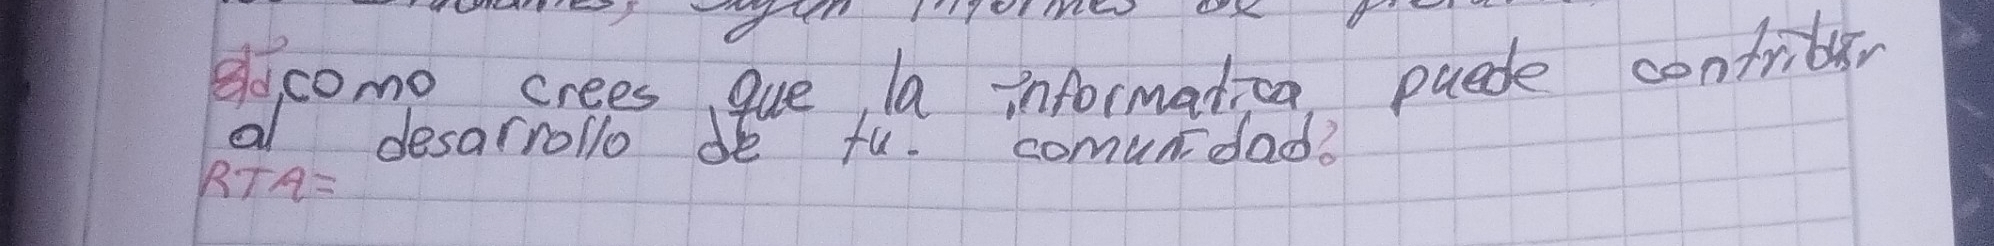 informes de
como crees que la informatica puede contribuir
al desarrollo de tu. comunidad?
RTA=